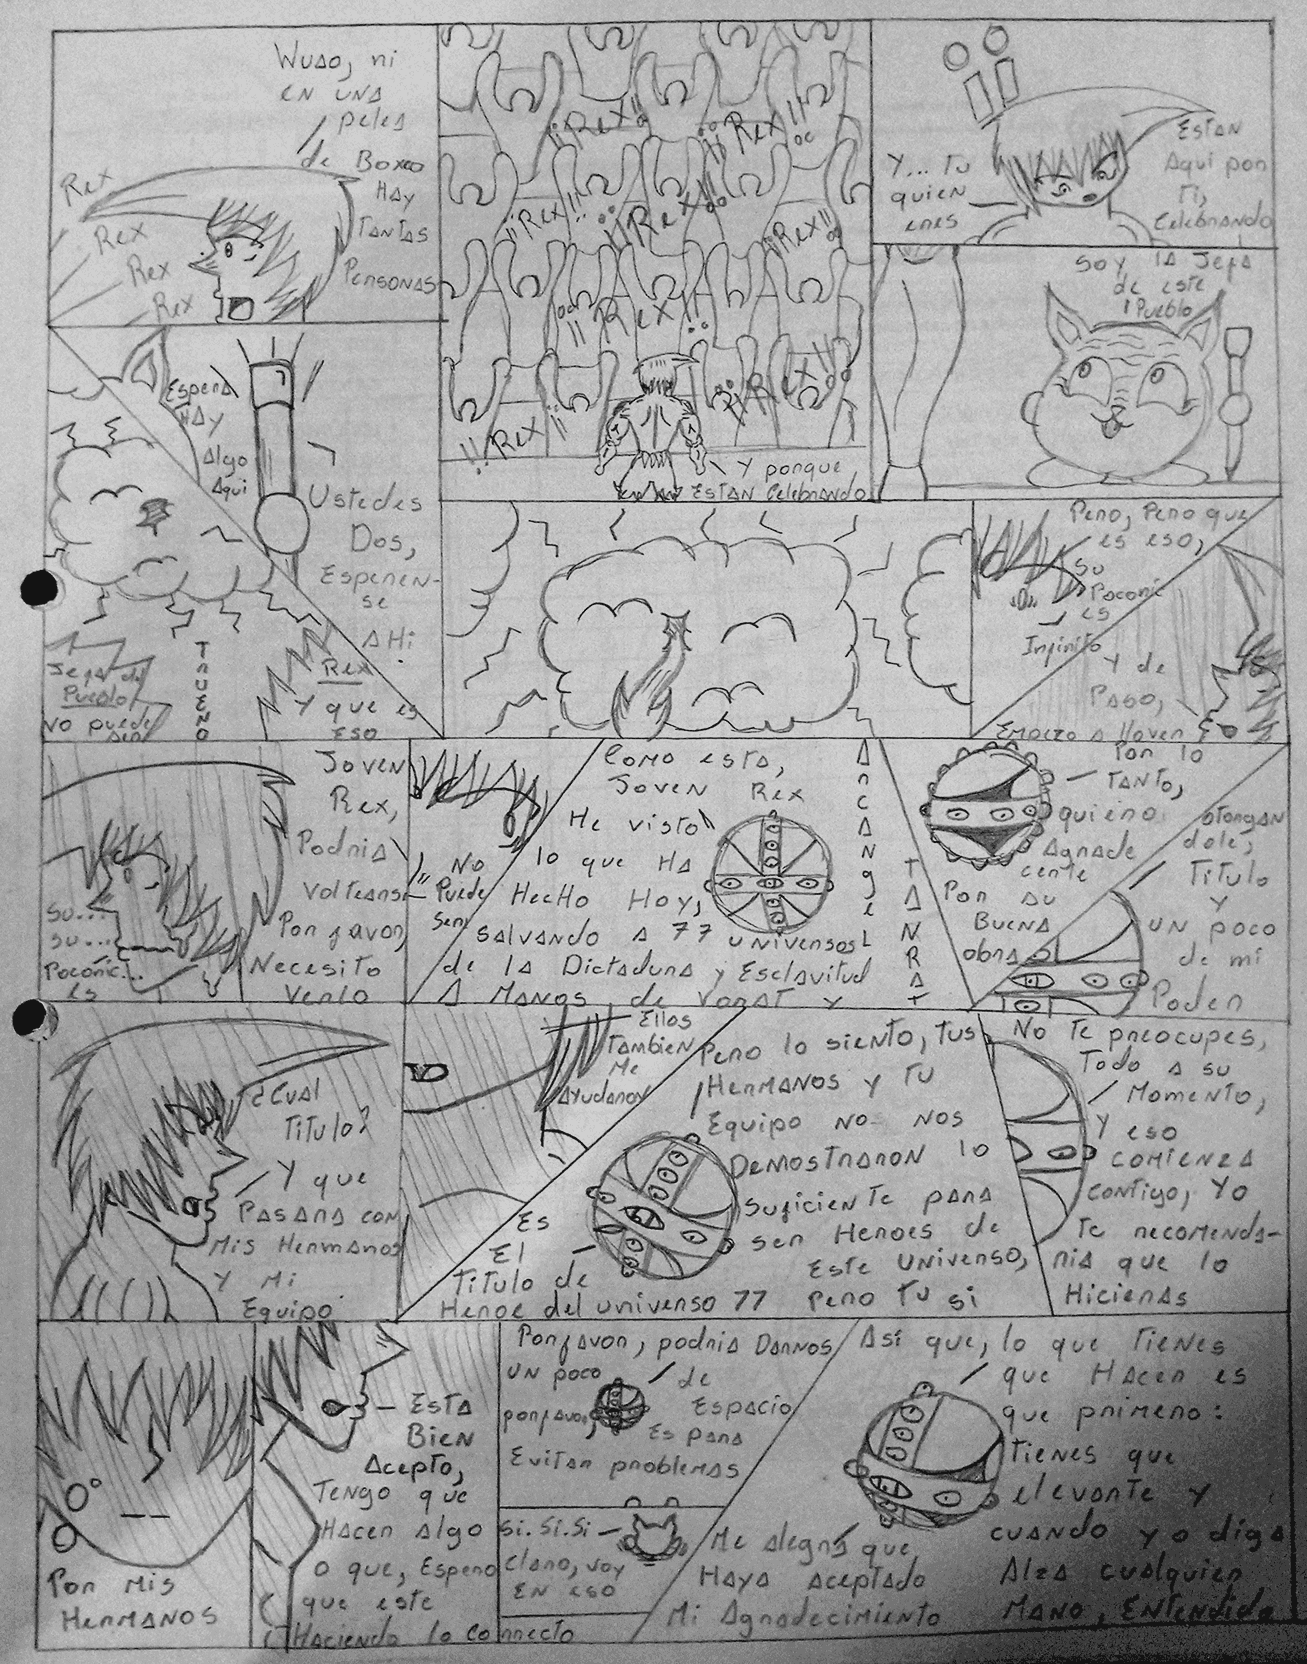 Wuao, ni
en una
pelea
de Boxeo
Hay
Tantas
Personas
Rex
Rex
Rex
Rex
¡¡Rex!!
¡¡Rex!!
¡¡Rex!!
¡¡Rex!!
¡¡Rex!!
¡¡Rex!!
¡¡Rex!!
¡¡Rex!!
Y porque
Estan Celebrando
Y... Tu
quien
eres
Estan
Aqui por
Ti,
Celebrando
Soy la Jefa
de este
Pueblo
Espera
Hay
Algo
Aqui
Ustedes
Dos,
Esperen-
se
Ahi
Jefa del
Pueblo
No puede
ser
Trueno
Rex
Y que es
eso
Pero, Pero que
es eso,
Su
Poconic
es
Infinito
Y de
Paso,
Empezo a llover
Su...
Su...
Poconic...
es
Joven
Rex,
Podria
Voltearse
Por favor,
Necesito
Verlo
No
Puede
Ser
Como esta,
Joven Rex
He visto
lo que Ha
Hecho Hoy,
Salvando a 77 universos
de la Dictadura y Esclavitud
A Manos de Vorat y
Arcangel
Tanrat
Por lo
Tanto,
quiero
Agrade
cerle
Por su
Buena
obra
otorgan
dole,
Titulo
Y
un poco
de mi
Poder
¿Cual
Titulo?
Y que
Pasara con
Mis Hermanos
Y Mi
Equipo
Ellos
Tambien
Me
Ayudaron
Es
El
Titulo de
Heroe del universo 77
Pero lo siento, tus
Hermanos y Tu
Equipo no nos
Demostraron lo
Suficiente para
ser Heroes de
Este universo,
Pero Tu si
No Te preocupes,
Todo a su
Momento,
Y eso
comienza
contigo, Yo
Te recomenda-
ria que lo
Hicieras
Por Mis
Hermanos
Esta
Bien
Acepto,
Tengo que
Hacer Algo
o que, Espero
que este
Haciendo lo correcto
Por favor, podria Darnos
un poco de
Espacio
por favor,
Es para
Evitar problemas
Si. Si. Si
claro, voy
en eso
Me alegra que
Haya Aceptado
Mi Agradecimiento
Asi que, lo que Tienes
que Hacer es
que primero:
Tienes que
elevarte y
cuando yo diga
Alza cualquier
Mano, Entendido